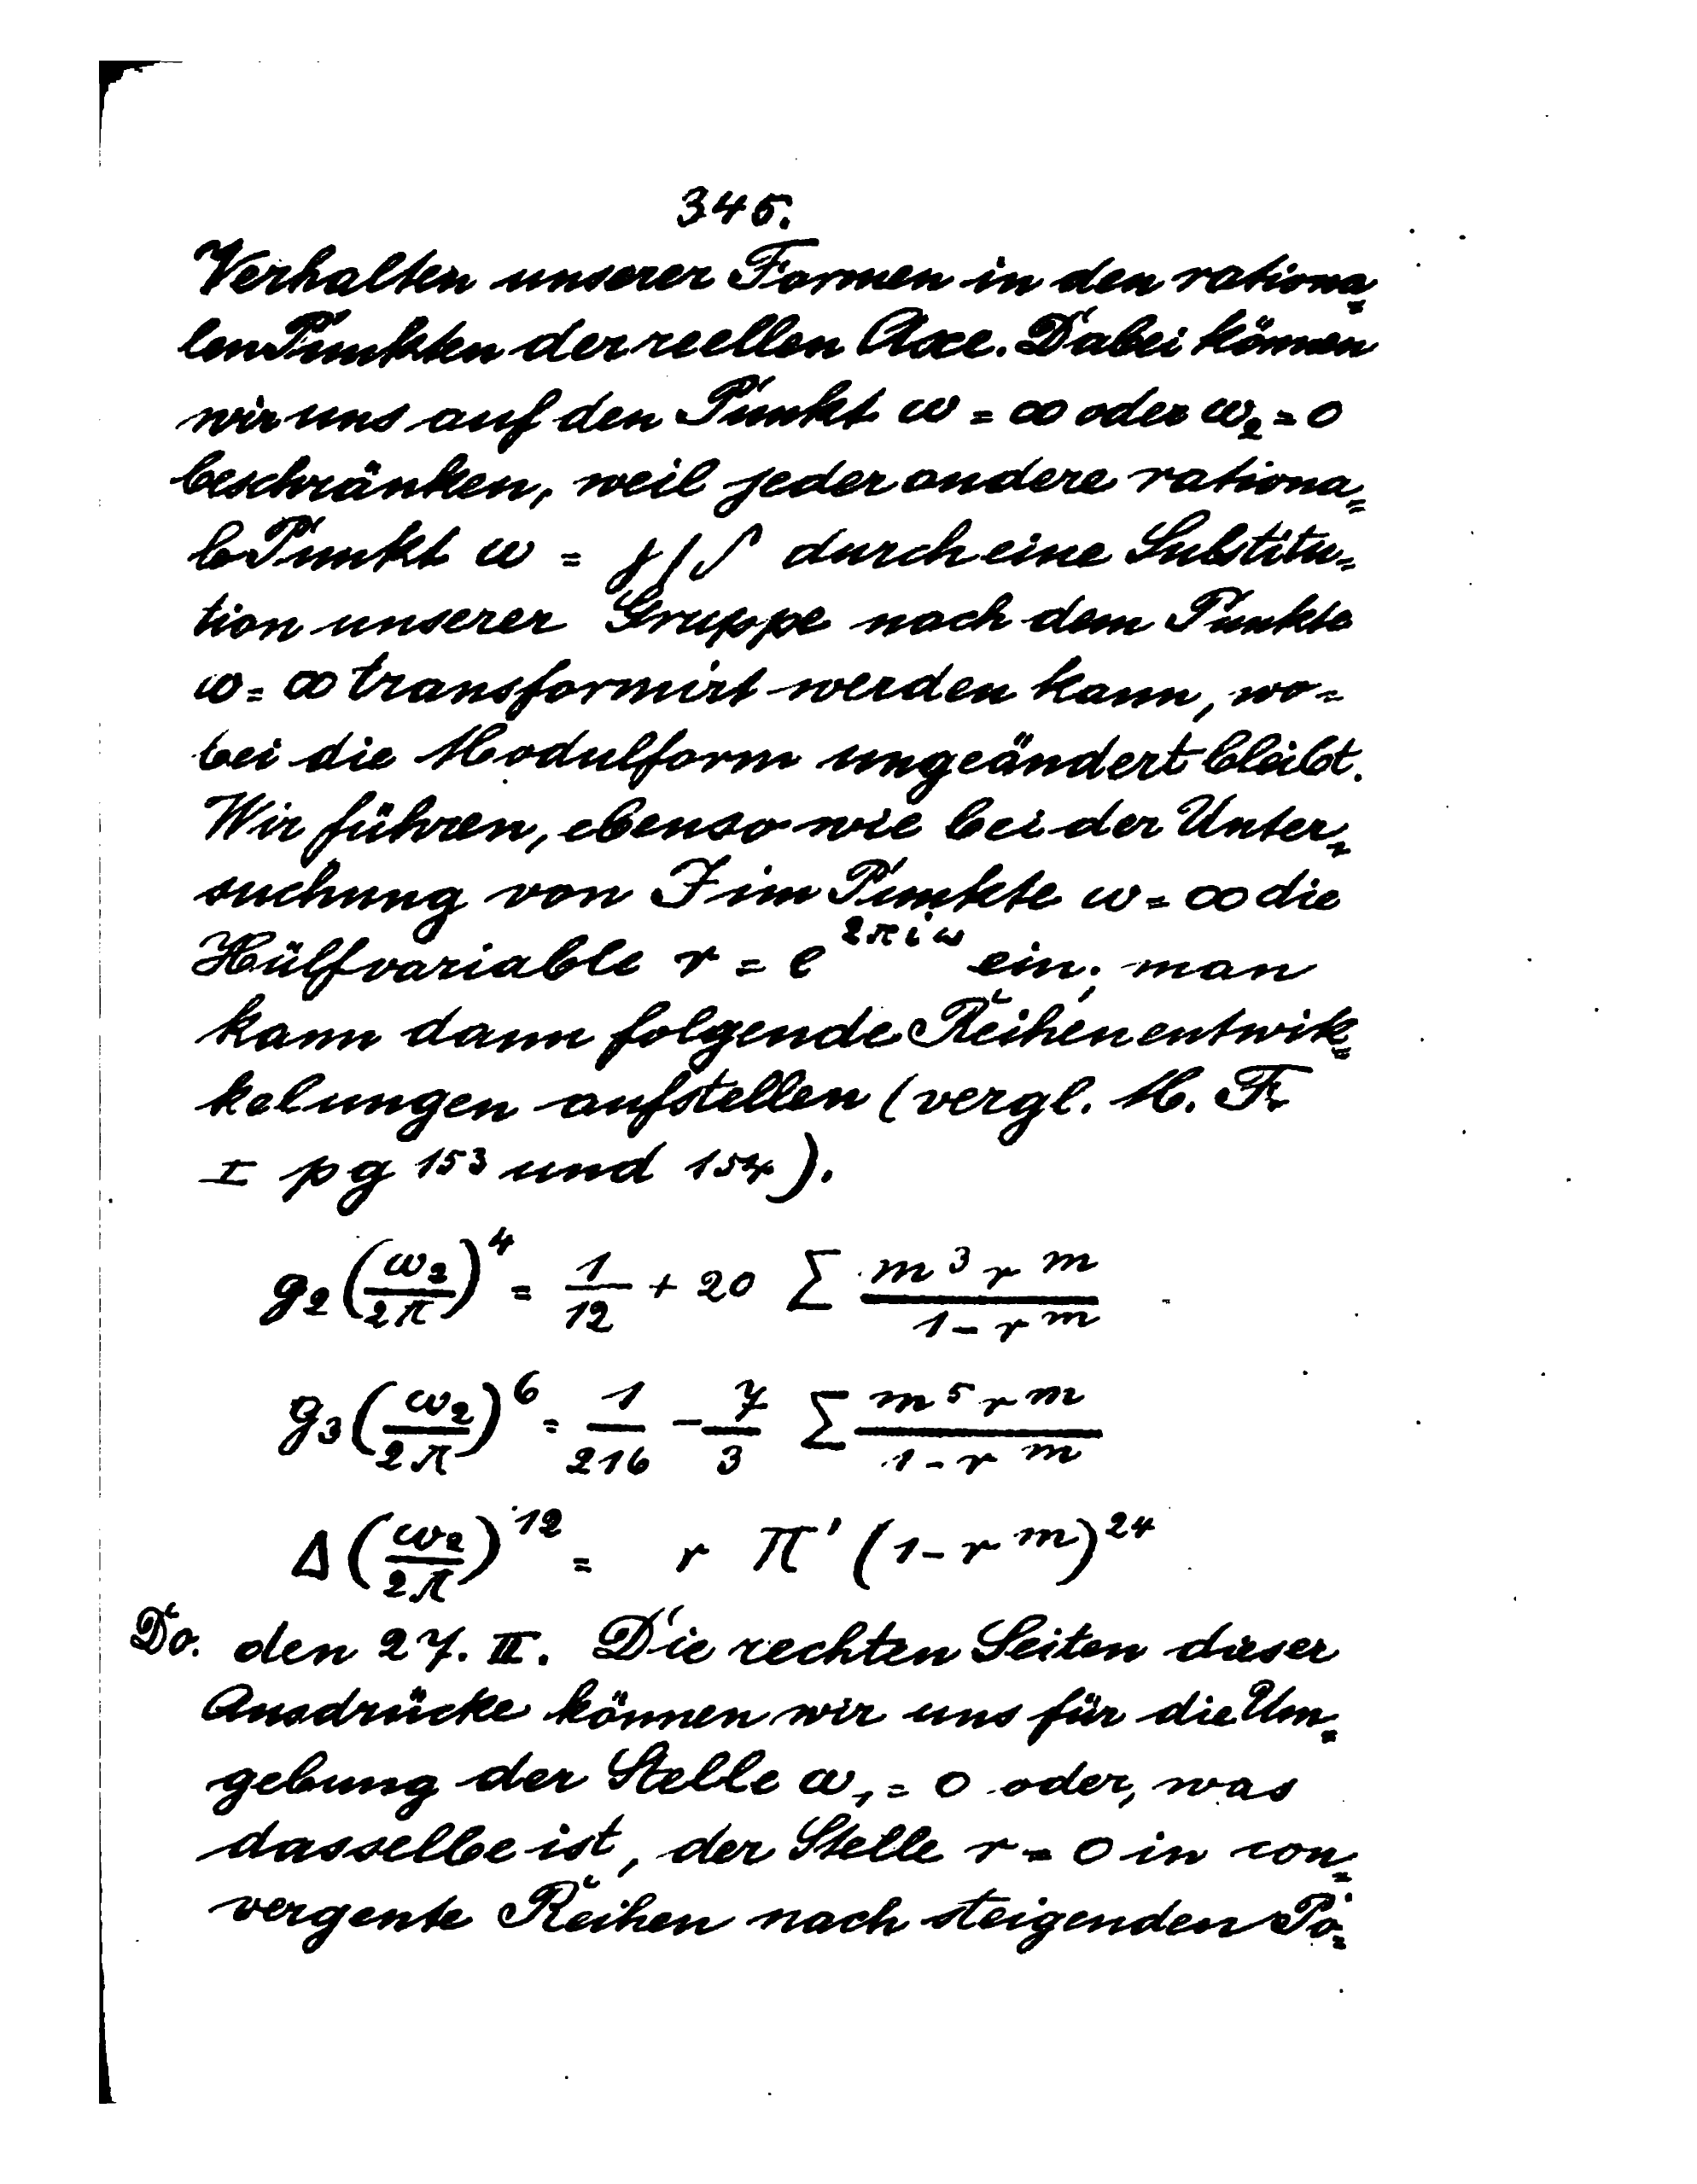 345.
Verhalten unserer Formen in den rationa=
len Punkten der reellen Axe. Dabei können
wir uns auf den Punkt ω = ∞ oder ω₂ = 0
beschränken, weil jeder andere rationa=
le Punkt ω = γ/δ durch eine Substitu=
tion unserer Gruppe nach dem Punkte
ω = ∞ transformirt werden kann, wo=
bei die Modulform ungeändert bleibt.
Wir führen, ebenso wie bei der Unter=
suchung von J im Punkte ω = ∞ die
Hülfvariable r = e^{2πiω} ein; man
kann dann folgende Reihenentwik=
kelungen aufstellen (vergl. M. F.
I pg 153 und 154).
g₂(ω₂/2π)⁴ = 1/12 + 20 Σ m³r^m/(1-r^m)
g₃(ω₂/2π)⁶ = 1/216 - 7/3 Σ m⁵r^m/(1-r^m)
Δ(ω₂/2π)¹² = r Π' (1-r^m)²⁴
Do. den 27. II. Die rechten Seiten dieser
Ausdrücke können wir uns für die Um=
gebung der Stelle ω₁ = 0 oder, was
dasselbe ist, der Stelle r = 0 in con=
vergente Reihen nach steigenden Po=